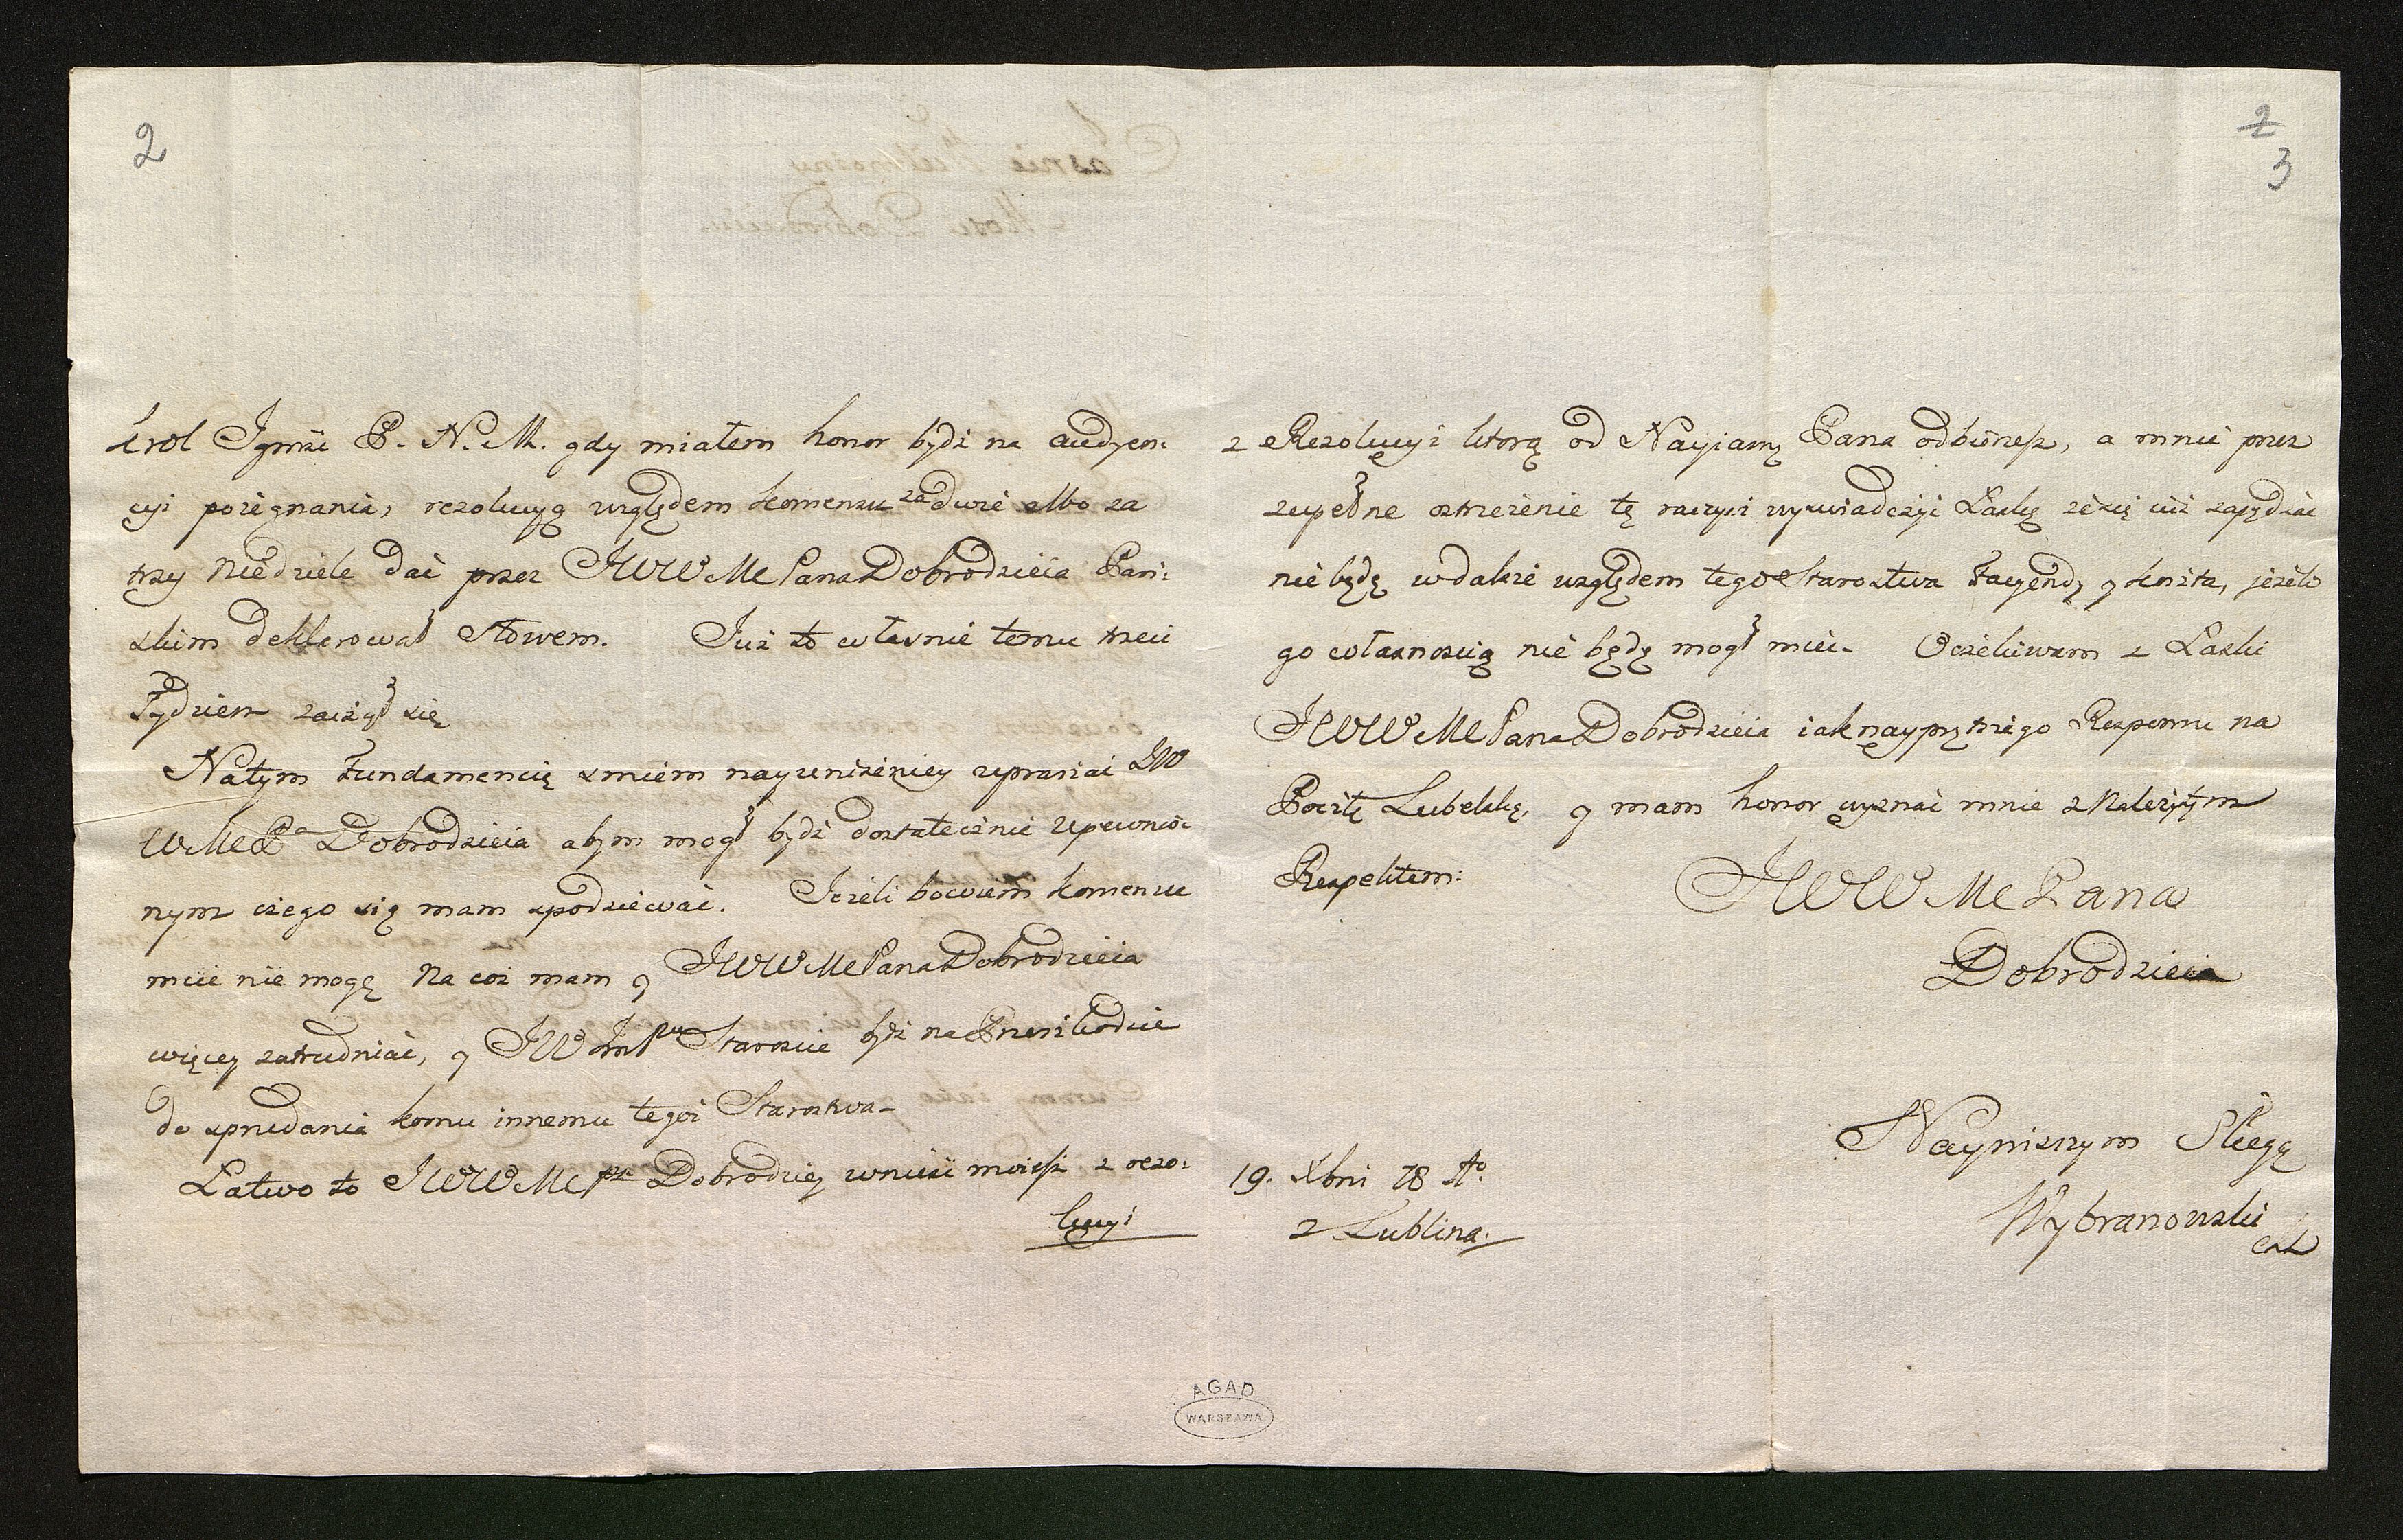 2
Krol Jgmśc P. N. M. gdy miałem honor bydź na audyen:
cyi pożegnania, rezolucyą względem konsensu za dwie albo za
trzy niedziele dać przez JWWMCPana Dobrodzieia Pań:
skim deklarował słowem. Już to własnie temu trzeci
Tydzien zaczął się
Natym Fundamencie smiem nayuniżeniey upraszać JW
WMCPa Dobrodzieia abym mogł bydź dostatecznie upewnio:
nym czego się mam spodziewać. Jeżeli bowiem konsensu
mieć nie mogę na coż mam y JWWMCPana Dobrodzieia
więcey zatrudniać, y JW Jm Pu Staroscie bydź na Przeszkodzie
do sprzedania komu innemu tegoż Starostwa
Łatwo to JWWMCPan Dobrodziey wnieść możesz z rezo:
lucyi
2
3
z Rezolucyi ktorą od Nayiasn Pana odbierzesz, a mnie przez
zupełne ostrzeżenie tę raczysz wyswiadczyć Łaskę żesię już zapędzać
nie będę wdalsze względem tego Starostwa Facyendy y koszta, jeżeli
go własnoscią nie będę mogł mieć. Oczekiwam z Łaski
JWWMCPana Dobrodzieia iak nayprętszego Responsu na
Pocztę Lubelską, y mam honor wyznać mnie z Należytym
Respektem:
JWWMCPana
Dobrodzieia
19. Xbris 78 Ao.
z Lublina.
Nayniższym Sługą
Wybranowski
AGAD
WARSZAWA